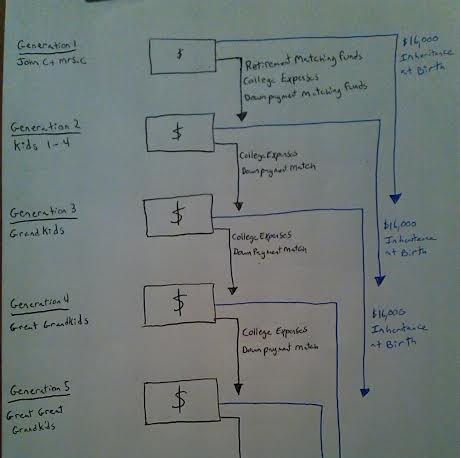 Generation 1
John C + mrs. C
$
$16,000
Inheritance
at Birth
Retirement Matching Funds
College Expenses
Down payment Matching Funds
Generation 2
Kids 1-4
$
College Expenses
Down payment Match
Generation 3
Grand Kids
$
$16,000
Inheritance
at Birth
College Expenses
Down Payment Match
Generation 4
Great Grandkids
$
$16,000
Inheritance
at Birth
College Expenses
Down payment Match
Generation 5
Great Great
Grandkids
$